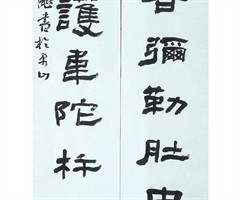 容彌勒肚
護韋陀杵
書於